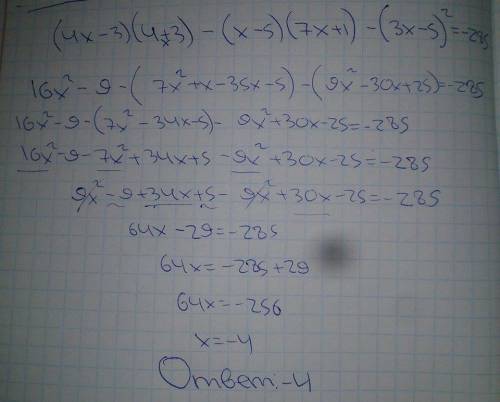 (4x-3)(4x+3) - (x-5)(7x+1) - (3x-5)²=-285
16x² - 9 - (7x² + x - 35x - 5) - (9x² - 30x + 25) = -285
16x² - 9 - (7x² - 34x - 5) - 9x² + 30x - 25 = -285
16x² - 9 - 7x² + 34x + 5 - 9x² + 30x - 25 = -285
9x² - 9 + 34x + 5 - 9x² + 30x - 25 = -285
64x - 29 = -285
64x = -285 + 29
64x = -256
x = -4
Ответ: -4